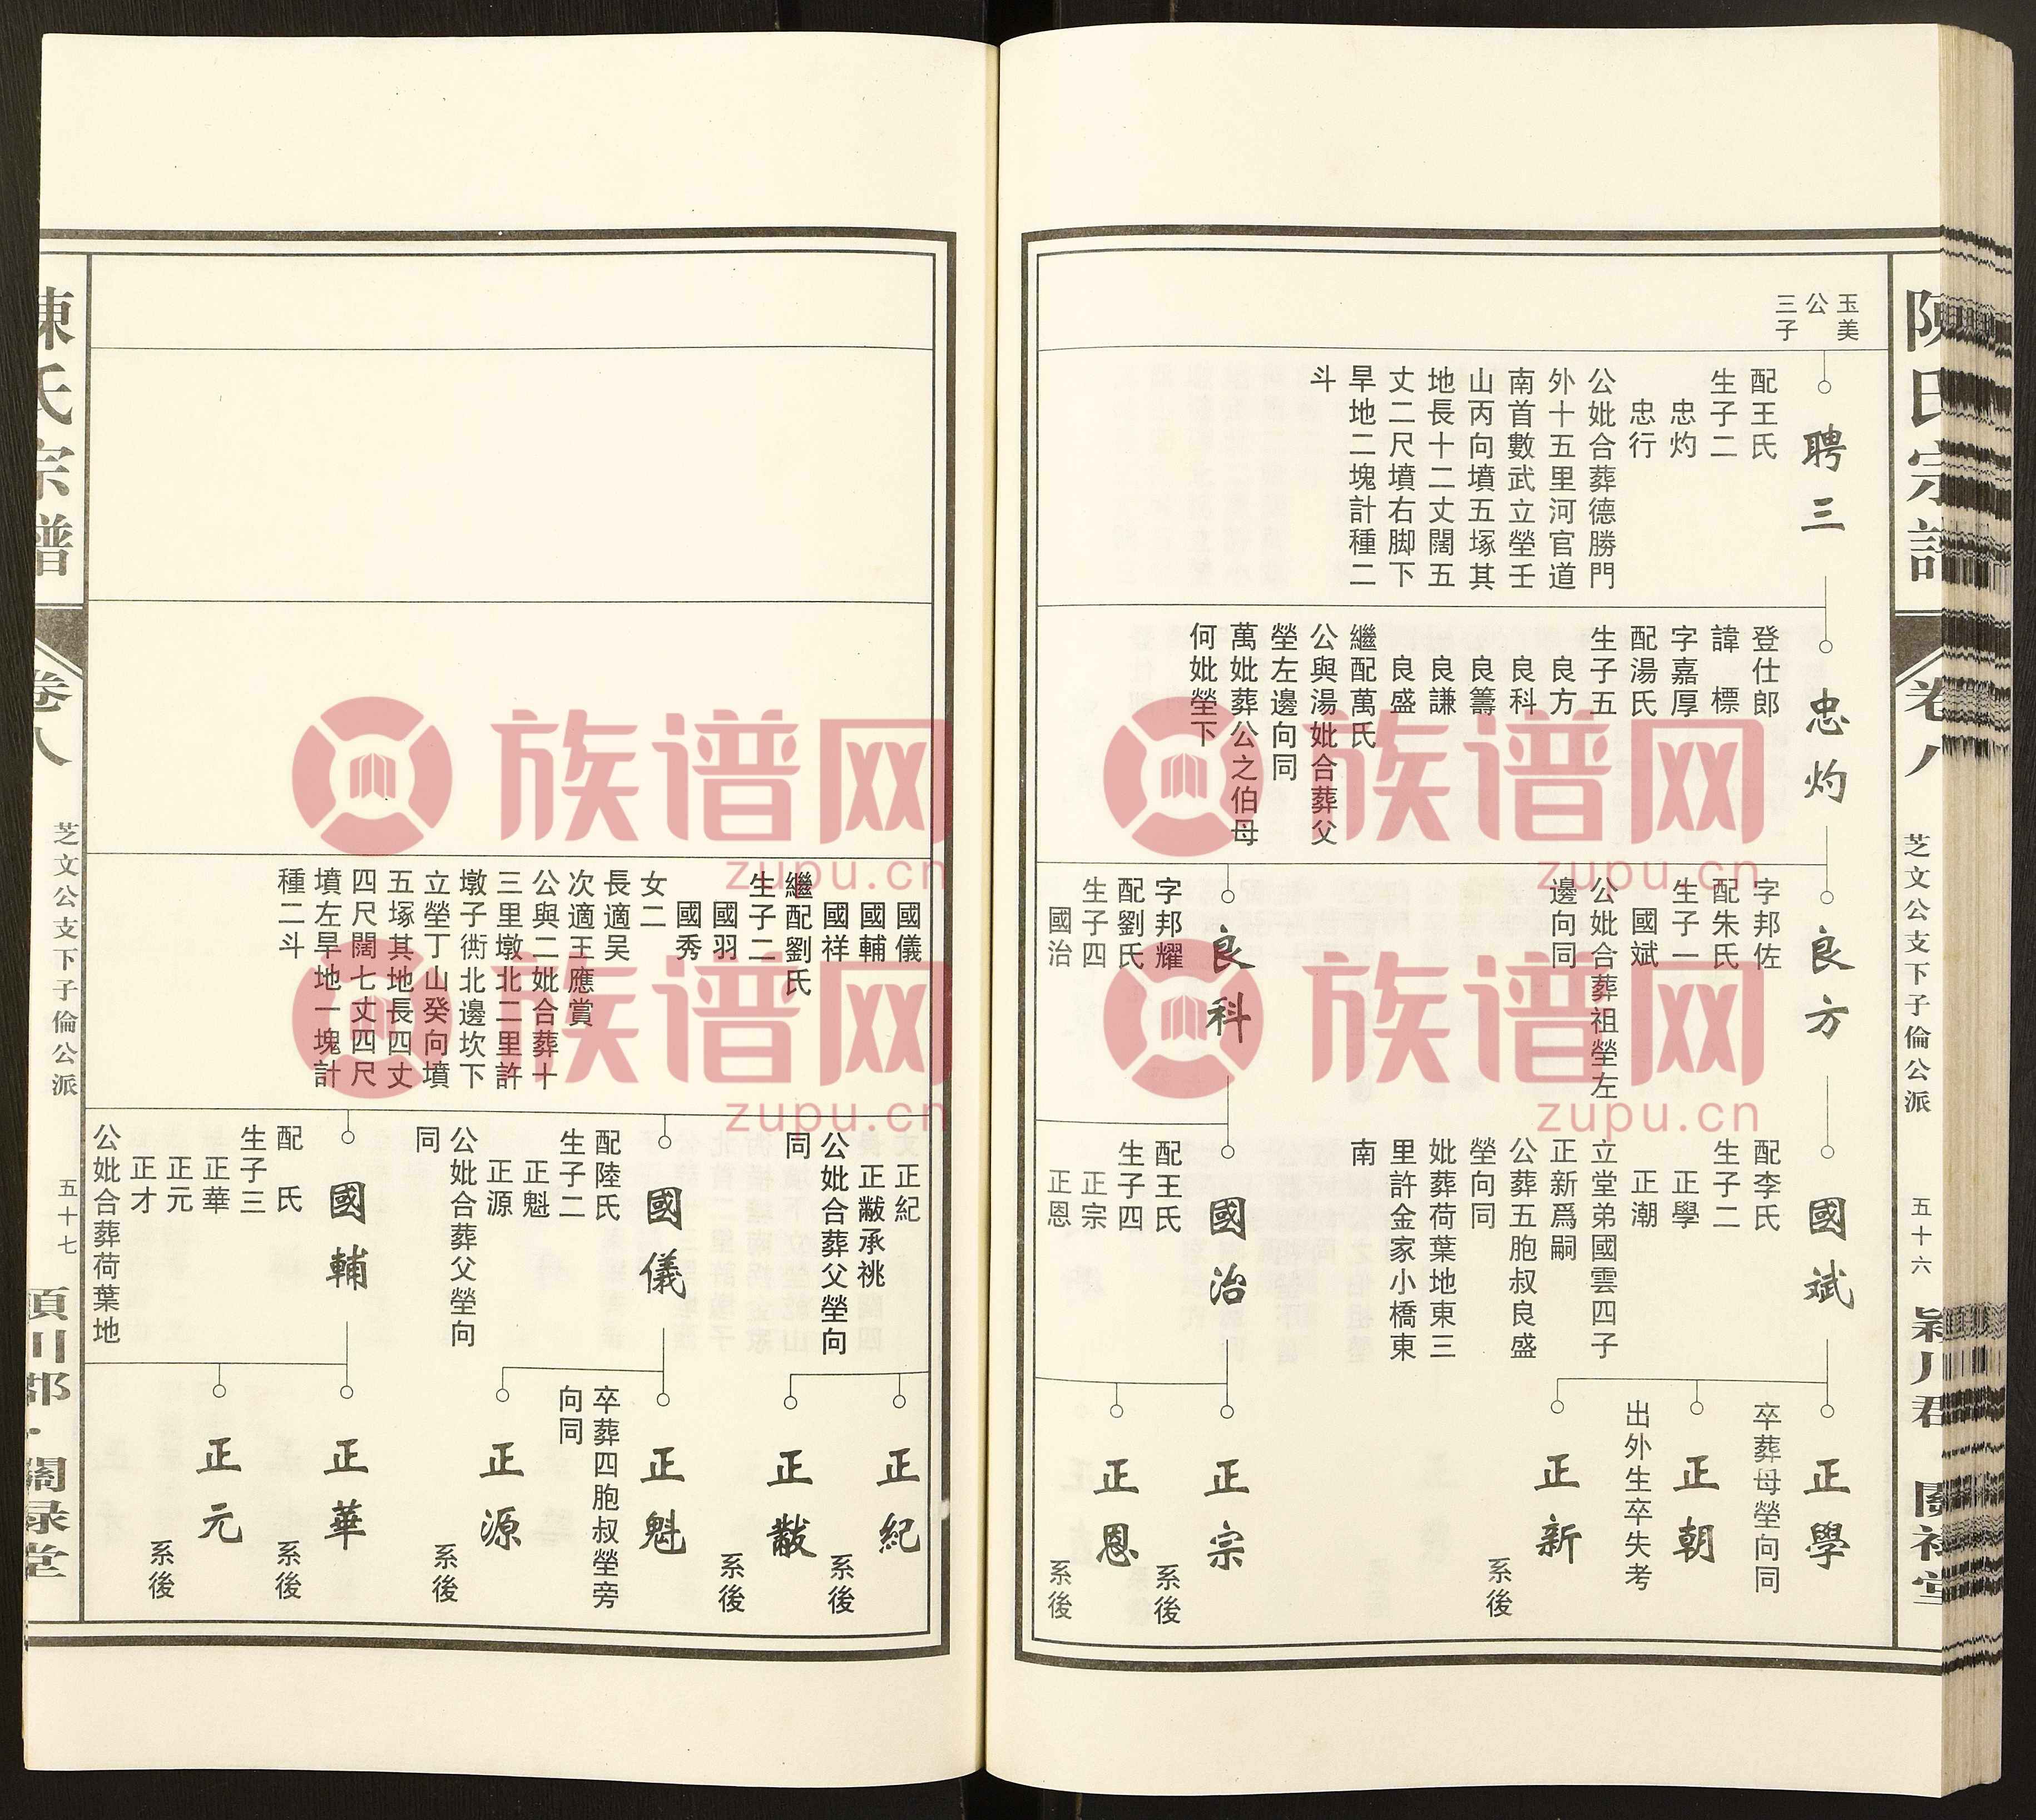 陳氏宗譜
卷八
芝文公支下子倫公派
五十六
玉美
公
三子
聘三
配王氏
生子二
忠灼
忠行
公妣合葬德勝門
外十五里河官道
南首數武立塋壬
山丙向墳五塚其
地長十二丈闊五
丈二尺墳右脚下
旱地二塊計種二
斗
忠灼
登仕郎
諱 標
字嘉厚
配湯氏
生子五
良方
良科
良籌
良謙
良盛
繼配萬氏
公與湯妣合葬父
塋左邊向同
萬妣葬公之伯母
何妣塋下
良方
字邦佐
配朱氏
生子一
國斌
公妣合葬祖塋左
邊向同
良科
字邦耀
配劉氏
生子四
國治
國斌
配李氏
生子二
正學
正潮
立堂弟國雲四子
正新爲嗣
公葬五胞叔良盛
塋向同
妣葬荷葉地東三
里許金家小橋東
南
國治
配王氏
生子四
正宗
正恩
正學
卒葬母塋向同
正朝
出外生卒失考
正新
系後
正宗
系後
正恩
系後
國儀
國輔
國祥
繼配劉氏
生子二
國羽
國秀
女二
長適吴
次適王應賞
公與二妣合葬十
三里墩北二里許
墩子衖北邊坎下
立塋丁山癸向墳
五塚其地長四丈
四尺闊七丈四尺
墳左旱地一塊計
種二斗
正紀
正黻承祧
公妣合葬父塋向
同
國儀
配陸氏
生子二
正魁
正源
公妣合葬父塋向
同
國輔
配 氏
生子三
正華
正元
正才
公妣合葬荷葉地
正紀
系後
正黻
系後
正魁
卒葬四胞叔塋旁
向同
正源
系後
正華
系後
正元
系後
陳氏宗譜
卷八
芝文公支下子倫公派
五十七
族谱网
zupu.cn
族谱网
zupu.cn
族谱网
zupu.cn
族谱网
zupu.cn